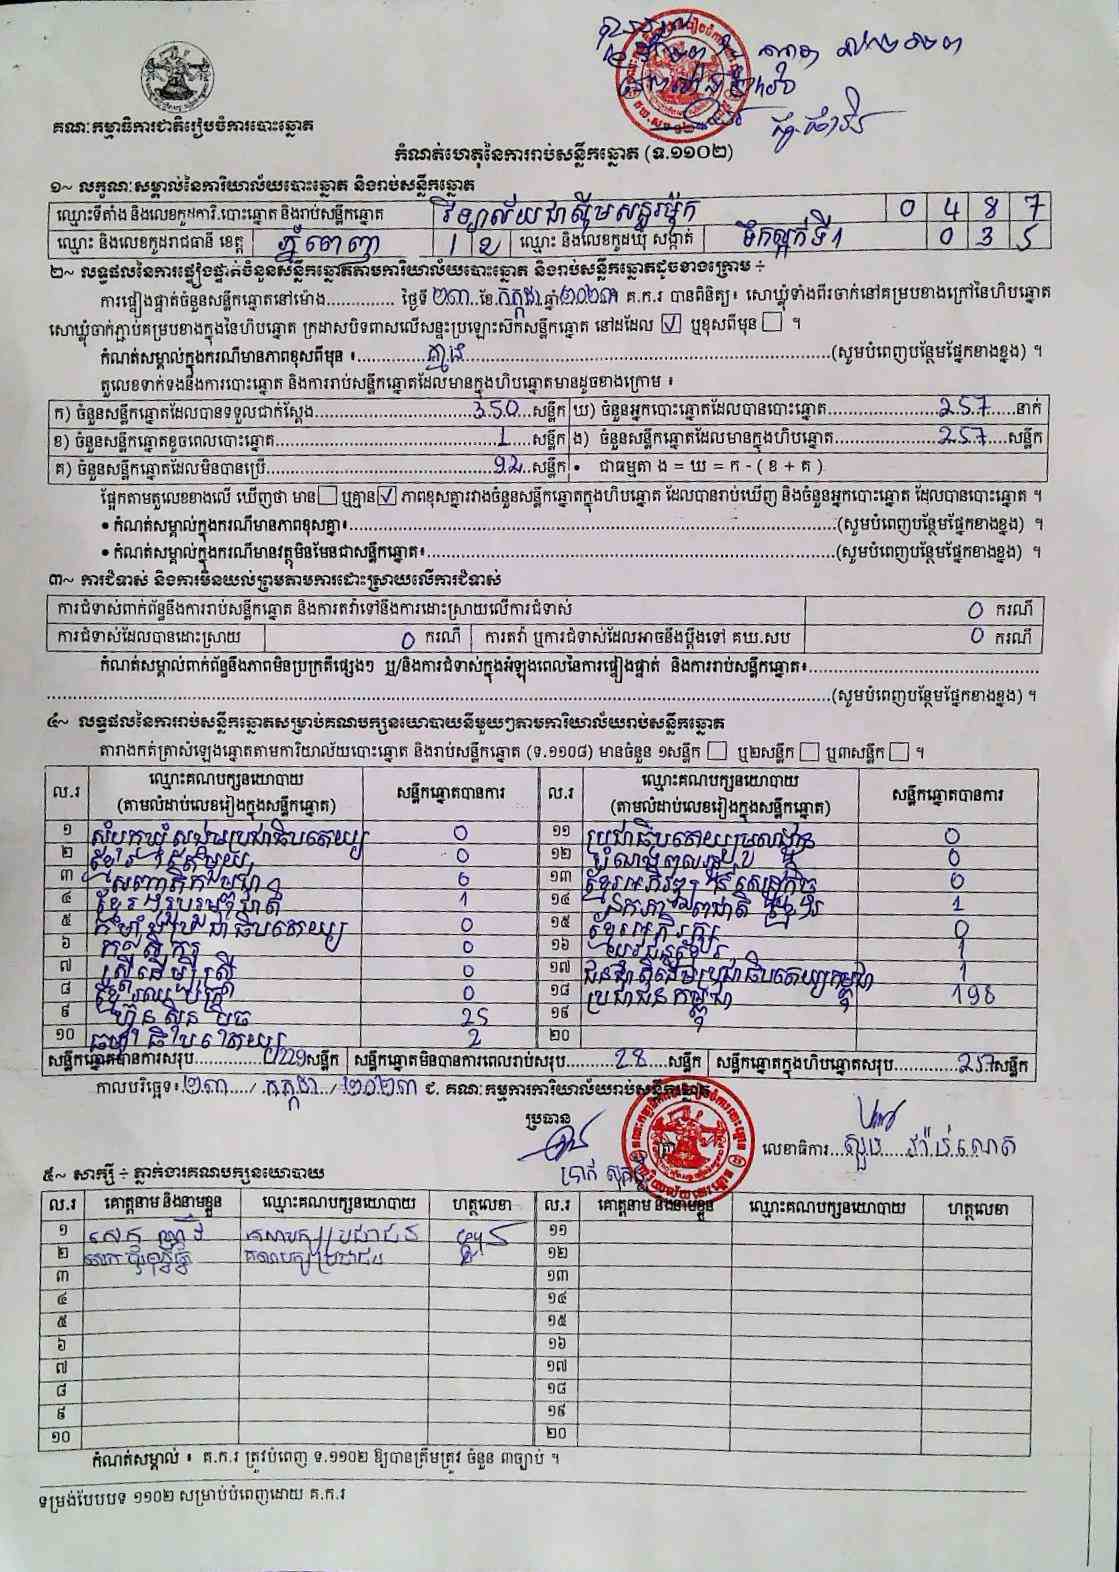 គណៈកម្មាធិការជាតិរៀបចំការបោះឆ្នោត
កំណត់ហេតុនៃការរាប់សន្លឹកឆ្នោត (ទ.១១០២)
១~ លក្ខណៈសម្គាល់នៃការិយាល័យបោះឆ្នោត និងរាប់សន្លឹកឆ្នោត
ឈ្មោះទីតាំង និងលេខកូដការិ.បោះឆ្នោត និងរាប់សន្លឹកឆ្នោត វិទ្យាល័យជាស៊ីមសន្ធរម៉ុក 0 4 8 7
ឈ្មោះ និងលេខកូដរាជធានី ខេត្ត ភ្នំពេញ 1 2 ឈ្មោះ និងលេខកូដឃុំ សង្កាត់ ទឹកល្អក់ទី1 0 3 5
២~ លទ្ធផលនៃការផ្ទៀងផ្ទាត់ចំនួនសន្លឹកឆ្នោតតាមការិយាល័យបោះឆ្នោត និងរាប់សន្លឹកឆ្នោតដូចខាងក្រោម ÷
ការផ្ទៀងផ្ទាត់ចំនួនសន្លឹកឆ្នោតនៅម៉ោង.............. ថ្ងៃទី ២៣ ខែ កក្កដា ឆ្នាំ ២០២៣ គ.ក.រ បានពិនិត្យ៖ សោឃ្លុំទាំងពីរចាក់នៅគម្របខាងក្រៅនៃហិបឆ្នោត
សោឃ្លុំចាក់ភ្ជាប់គម្របខាងក្នុងនៃហិបឆ្នោត ក្រដាសបិទពាសលើសន្ទះប្រឡោះស៊កសន្លឹកឆ្នោត នៅដដែល ☑ ឬខុសពីមុន ☐ ។
កំណត់សម្គាល់ក្នុងករណីមានភាពខុសពីមុន ៖ គ្មាន (សូមបំពេញបន្ថែមផ្នែកខាងខ្នង) ។
តួលេខទាក់ទងនឹងការបោះឆ្នោត និងការរាប់សន្លឹកឆ្នោតដែលមានក្នុងហិបឆ្នោតមានដូចខាងក្រោម ៖
ក) ចំនួនសន្លឹកឆ្នោតដែលបានទទួលជាក់ស្តែង 350 សន្លឹក ឃ) ចំនួនអ្នកបោះឆ្នោតដែលបានបោះឆ្នោត 257 នាក់
ខ) ចំនួនសន្លឹកឆ្នោតខូចពេលបោះឆ្នោត 1 សន្លឹក ង) ចំនួនសន្លឹកឆ្នោតដែលមានក្នុងហិបឆ្នោត 257 សន្លឹក
គ) ចំនួនសន្លឹកឆ្នោតដែលមិនបានប្រើ 92 សន្លឹក • ជាធម្មតា ង = ឃ = ក - ( ខ + គ )
ផ្អែកតាមតួលេខខាងលើ ឃើញថា មាន ☐ ឬគ្មាន ☑ ភាពខុសគ្នារវាងចំនួនសន្លឹកឆ្នោតក្នុងហិបឆ្នោត ដែលបានរាប់ឃើញ និងចំនួនអ្នកបោះឆ្នោត ដែលបានបោះឆ្នោត ។
• កំណត់សម្គាល់ក្នុងករណីមានភាពខុសគ្នា៖ (សូមបំពេញបន្ថែមផ្នែកខាងខ្នង) ។
• កំណត់សម្គាល់ក្នុងករណីមានវត្ថុមិនមែនជាសន្លឹកឆ្នោត៖ (សូមបំពេញបន្ថែមផ្នែកខាងខ្នង) ។
៣~ ការជំទាស់ និងការមិនយល់ព្រមតាមការដោះស្រាយលើការជំទាស់
ការជំទាស់ពាក់ព័ន្ធនឹងការរាប់សន្លឹកឆ្នោត និងការតវ៉ាទៅនឹងការដោះស្រាយលើការជំទាស់ 0 ករណី
ការជំទាស់ដែលបានដោះស្រាយ 0 ករណី ការតវ៉ា ឬការជំទាស់ដែលអាចនឹងប្តឹងទៅ គឃ.សប 0 ករណី
កំណត់សម្គាល់ពាក់ព័ន្ធនឹងភាពមិនប្រក្រតីផ្សេងៗ ឬ/និងការជំទាស់ក្នុងអំឡុងពេលនៃការផ្ទៀងផ្ទាត់ និងការរាប់សន្លឹកឆ្នោត៖
(សូមបំពេញបន្ថែមផ្នែកខាងខ្នង) ។
៤~ លទ្ធផលនៃការរាប់សន្លឹកឆ្នោតសម្រាប់គណបក្សនយោបាយនីមួយៗតាមការិយាល័យរាប់សន្លឹកឆ្នោត
តារាងកត់ត្រាសំឡេងឆ្នោតតាមការិយាល័យបោះឆ្នោត និងរាប់សន្លឹកឆ្នោត (ទ.១១០៨) មានចំនួន ១សន្លឹក ☐ ឬ២សន្លឹក ☐ ឬ៣សន្លឹក ☐ ។
ល.រ ឈ្មោះគណបក្សនយោបាយ (តាមលំដាប់លេខរៀងក្នុងសន្លឹកឆ្នោត) សន្លឹកឆ្នោតបានការ ល.រ ឈ្មោះគណបក្សនយោបាយ (តាមលំដាប់លេខរៀងក្នុងសន្លឹកឆ្នោត) សន្លឹកឆ្នោតបានការ
១ សំបុកឃ្មុំសង្គមប្រជាធិបតេយ្យ 0 ១១ ប្រជាធិបតេយ្យមូលដ្ឋាន 0
២ ខ្មែរតែមួយ 0 ១២ 0
៣ 0 ១៣ ខ្មែរអភិវឌ្ឍន៍សេដ្ឋកិច្ច 0
៤ ខ្មែររួបរួមជាតិ 1 ១៤ ឯកភាពជាតិខ្មែរ 1
៥ កម្លាំងប្រជាធិបតេយ្យ 0 ១៥ ខ្មែរអភិរក្ស 0
៦ កសិករ 0 ១៦ យុវជនខ្មែរ 1
៧ ស្រ្តីដើម្បីស្រ្តី 0 ១៧ ជនជាតិដើមប្រជាធិបតេយ្យកម្ពុជា 1
៨ ខ្មែរឈប់ក្រ 0 ១៨ ប្រជាជនកម្ពុជា 198
៩ ហ៊្វុនស៊ិនប៉ិច 25 ១៩
១០ ធម្មាធិបតេយ្យ 2 ២០
សន្លឹកឆ្នោតបានការសរុប 229 សន្លឹក សន្លឹកឆ្នោតមិនបានការពេលរាប់សរុប 28 សន្លឹក សន្លឹកឆ្នោតក្នុងហិបឆ្នោតសរុប 257 សន្លឹក
កាលបរិច្ឆេទ៖ ២៣ / កក្កដា / ២០២៣ ជ. គណៈកម្មការការិយាល័យរាប់សន្លឹកឆ្នោត
ប្រធាន
លេខាធិការ
៥~ សាក្សី ÷ ភ្នាក់ងារគណបក្សនយោបាយ
ល.រ គោត្តនាម និងនាមខ្លួន ឈ្មោះគណបក្សនយោបាយ ហត្ថលេខា ល.រ គោត្តនាម និងនាមខ្លួន ឈ្មោះគណបក្សនយោបាយ ហត្ថលេខា
១ គណបក្សប្រជាជន ១១
២ គណបក្សប្រជាជន ១២
៣ ១៣
៤ ១៤
៥ ១៥
៦ ១៦
៧ ១៧
៨ ១៨
៩ ១៩
១០ ២០
កំណត់សម្គាល់ ៖ គ.ក.រ ត្រូវបំពេញ ទ.១១០២ ឱ្យបានត្រឹមត្រូវ ចំនួន ៣ច្បាប់ ។
ទម្រង់បែបបទ ១១០២ សម្រាប់បំពេញដោយ គ.ក.រ